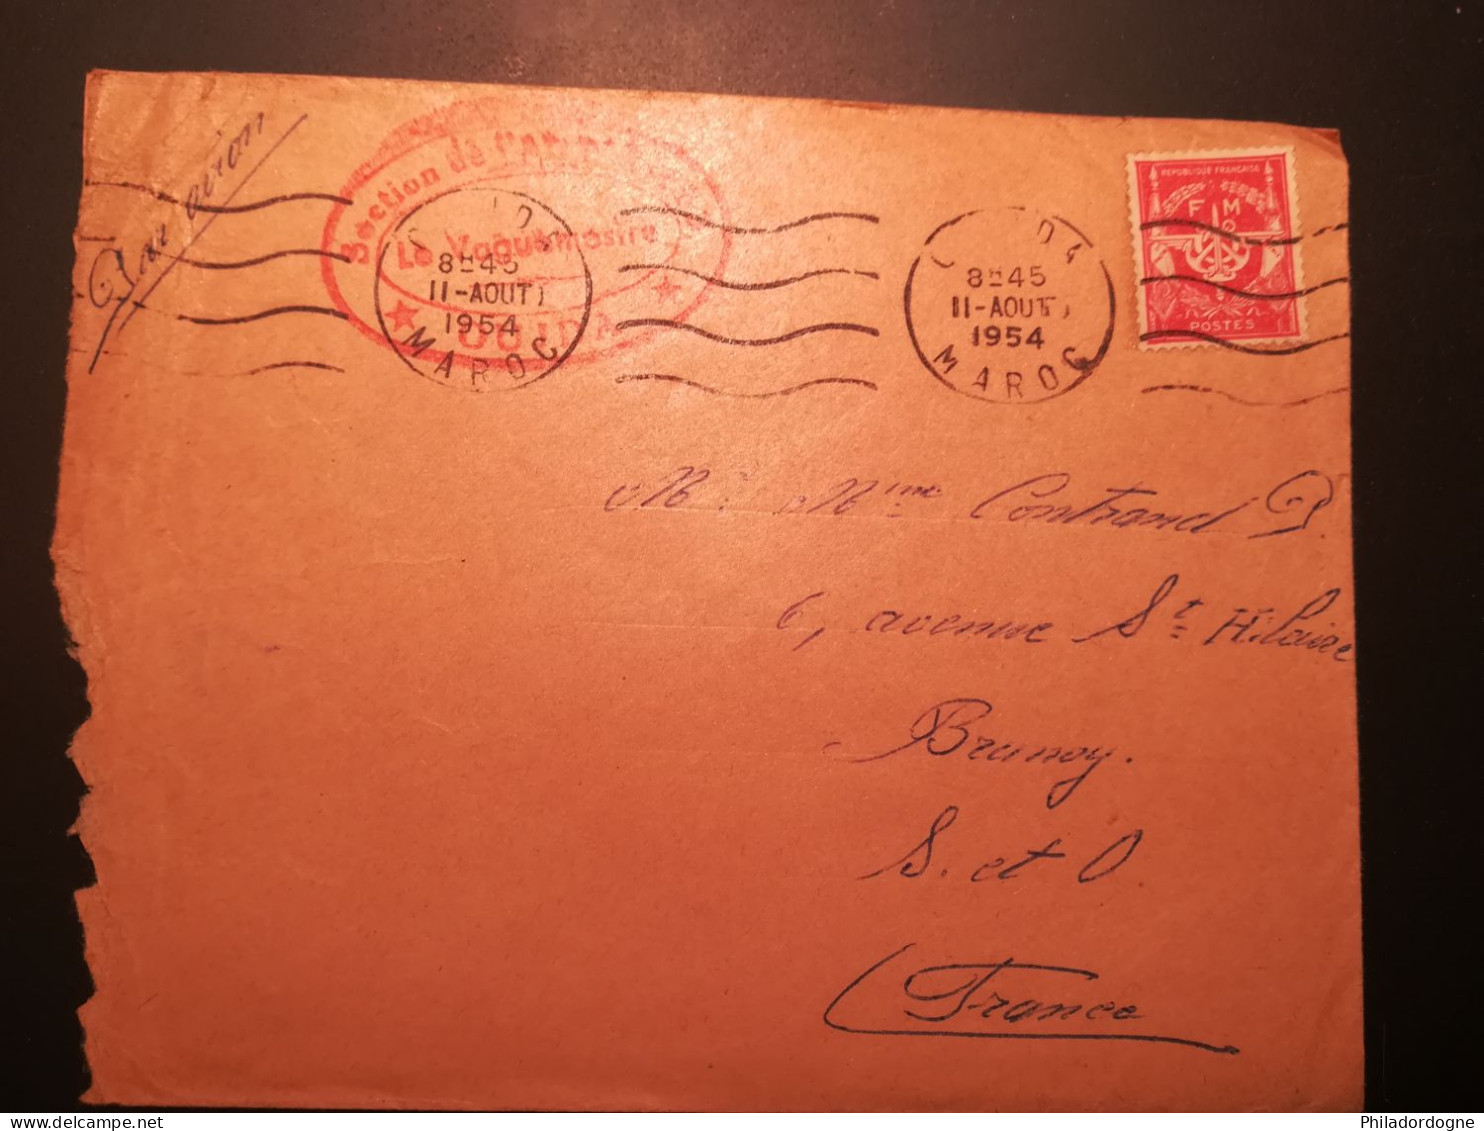 Par avion
Section de
Le Vaguemestre
OUJDA
8H45
11-AOUT
1954
MAROC
8H45
11-AOUT
1954
MAROC
REPUBLIQUE FRANÇAISE
F M
POSTES
M. Mme Contrand P.
6, avenue St Hilaire
Brunoy.
S. et O.
(France
Philadordogne